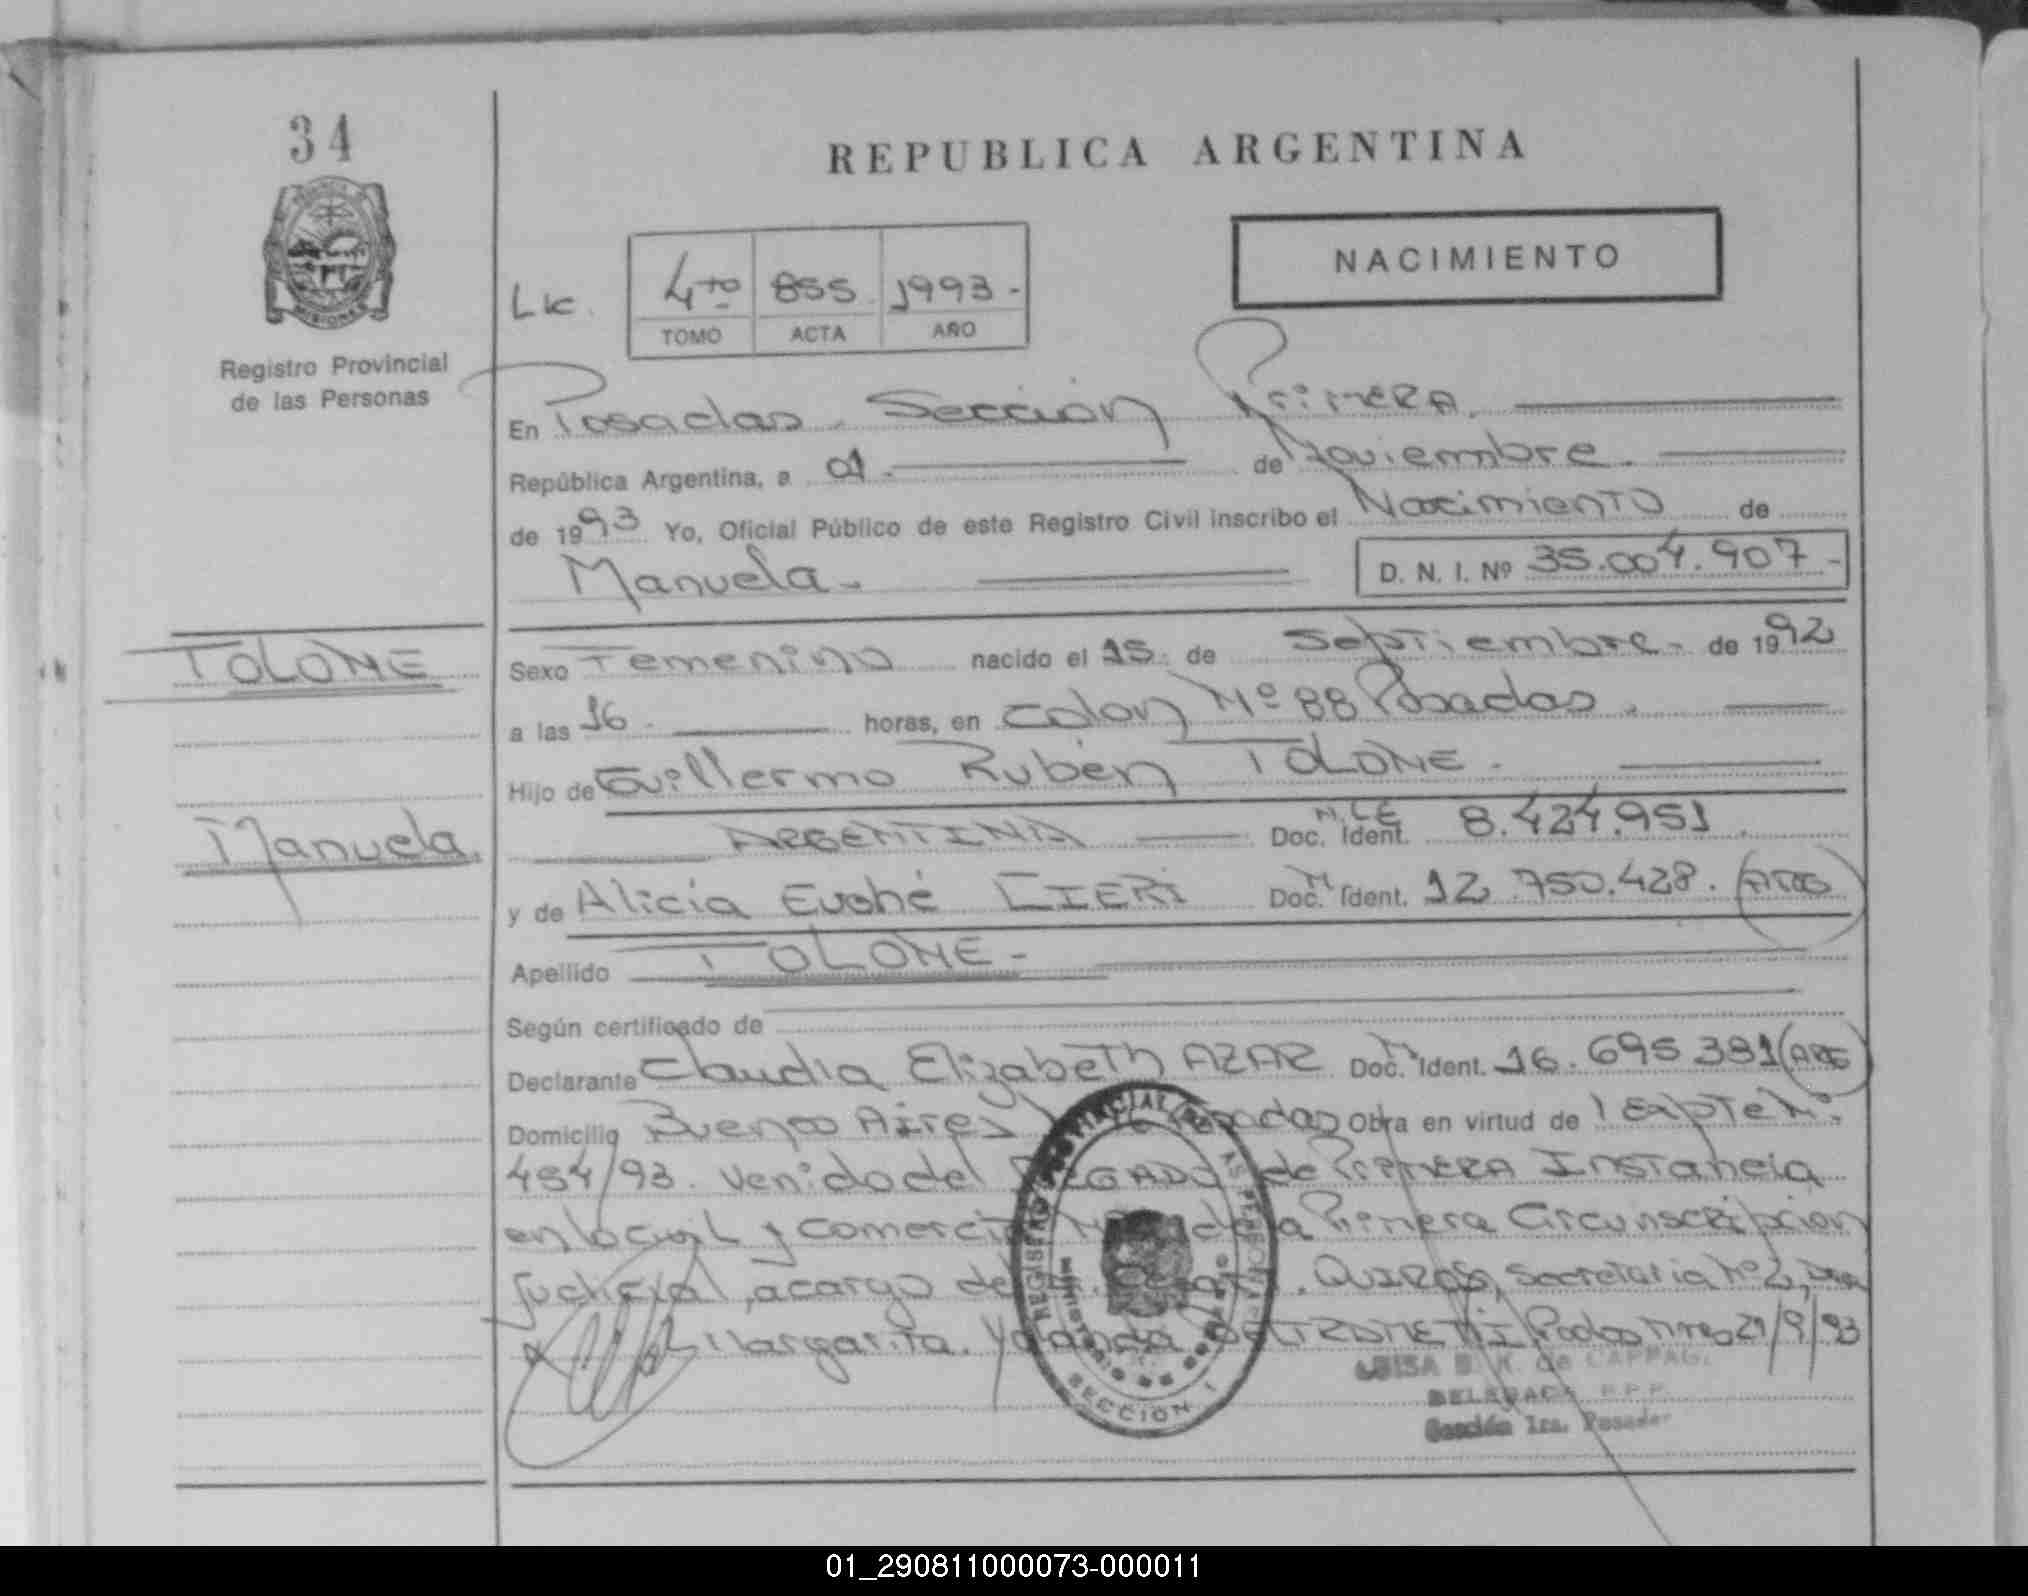 34
REPUBLICA ARGENTINA
NACIMIENTO
MISIONES
Registro Provincial
de las Personas
Lic. 4to 855 1993.-
TOMO ACTA AÑO
En Posadas. Sección Primera.
República Argentina, a 01. de Noviembre.
de 1993 Yo, Oficial Público de este Registro Civil inscribo el Nacimiento de
Manuela.- D. N. I. Nº 35.004.907.-
TOLONE
Sexo Femenino nacido el 15. de Septiembre. de 1992
a las 16. horas, en Colon Nº 88 Posadas.
Hijo de Guillermo Rubén TOLONE.
Manuela.
ARGENTINA Doc. Ident. 8.424.951
y de Alicia Evohé CIERI Doc. Ident. 12.750.428. (ARG)
Apellido TOLONE.-
Según certificado de
Declarante Claudia Elizabeth AZAR Doc. Ident. 16.695.391 (ARG)
Domicilio Buenos Aires Posadas Obra en virtud de Expte Nº
454/93. venido del de Primera Instancia
en lo civil y comercial de la Primera Circunscripcion
Judicial, a cargo del QUIROS, Secretaria Nº 2,
Margarita Yolanda 29/9/93
REGISTRO PROVINCIAL DE LAS PERSONAS
SECCION 1
LUISA de CAPPAG
DELEGADA R.P.P.
Sección 1ra. Posadas
01_290811000073-000011